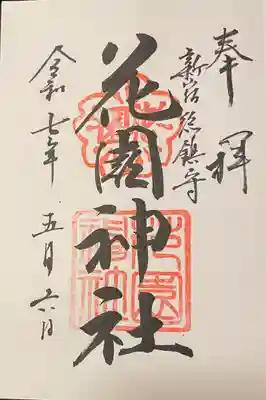 奉拝
新宿総鎮守
花園神社
令和七年 五月六日
花園神社